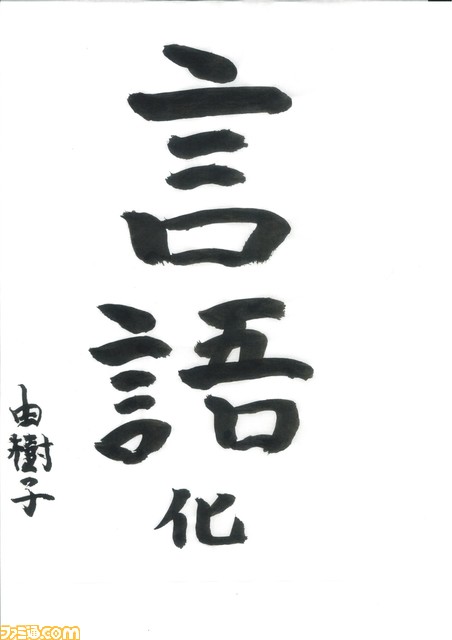 言語化
由樹子
ファミ通.com